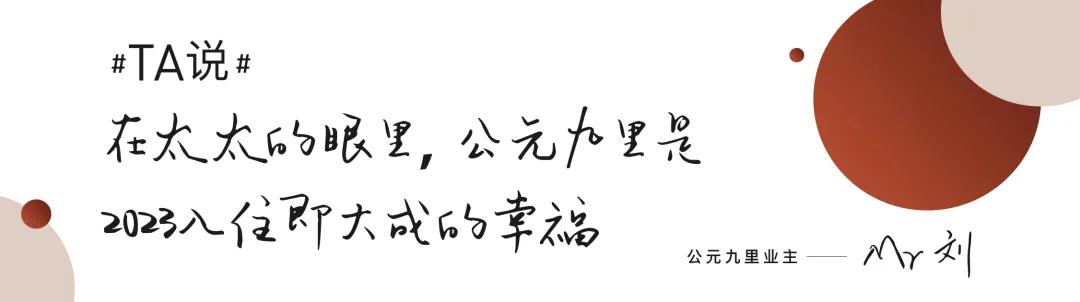 #TA说#
在太太的眼里，公元九里是
2023入住即大成的幸福
公元九里业主 —— Mr 刘